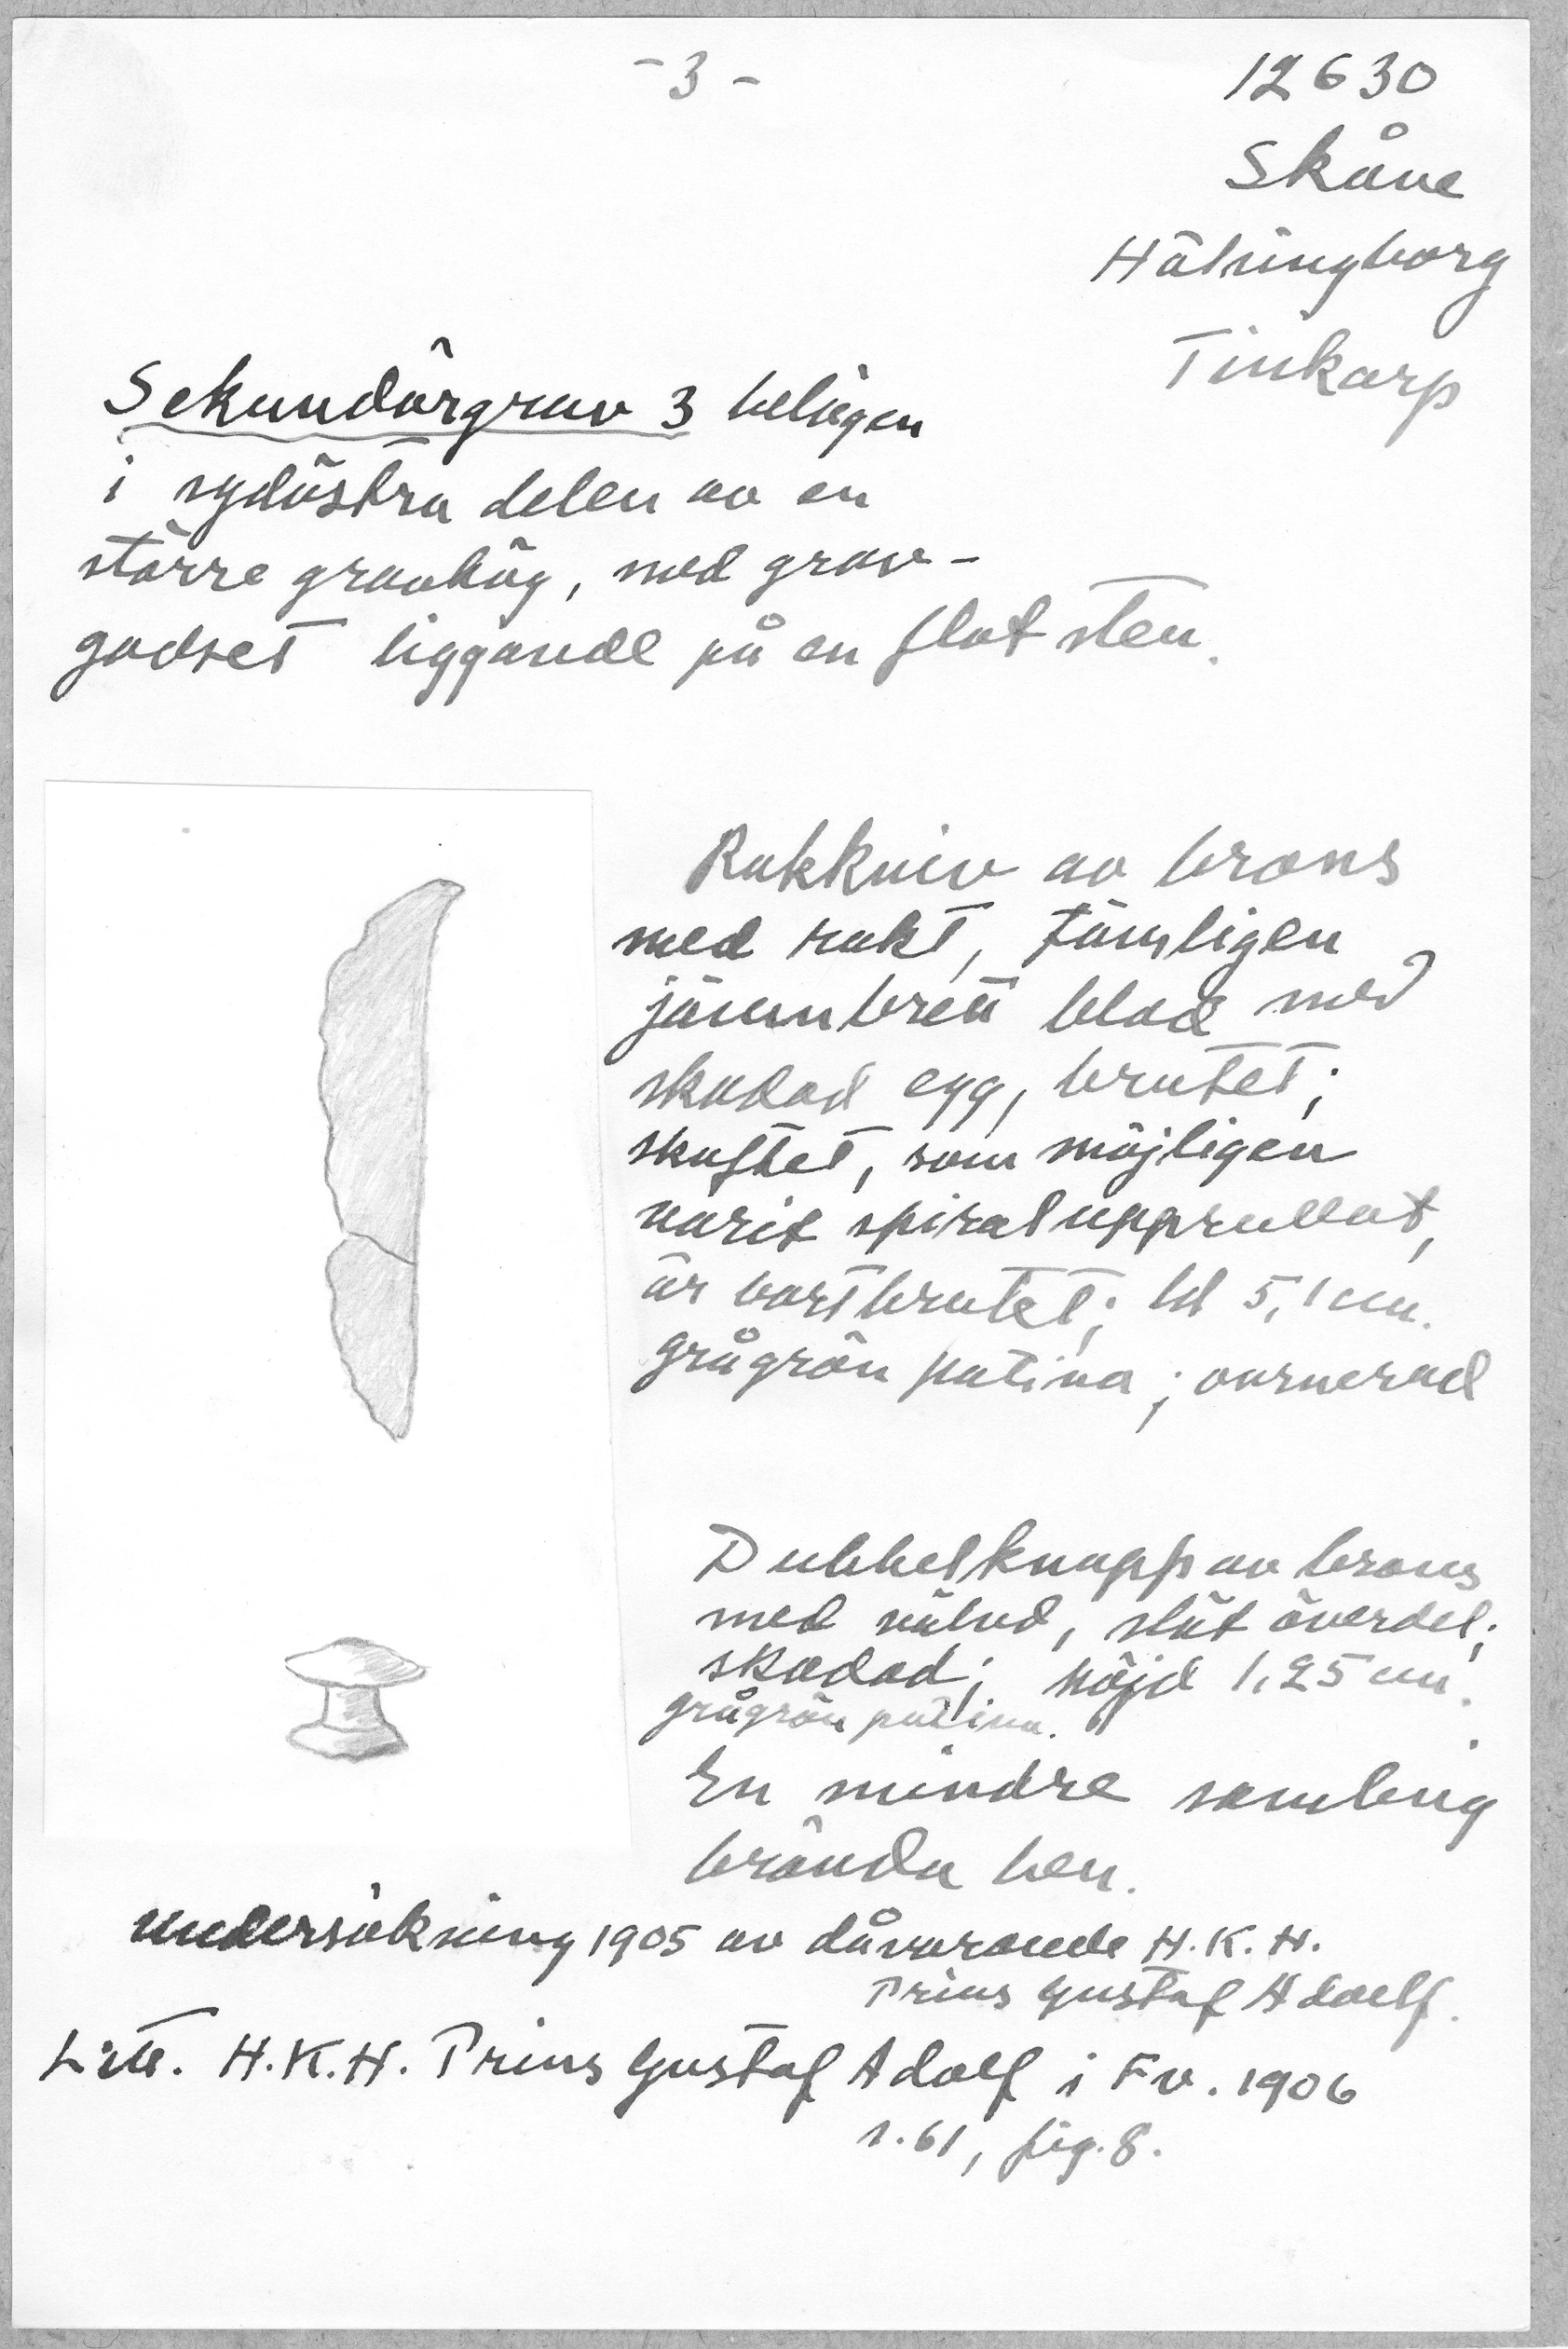 - 3 -
12630
Skåne
Hälsingborg
Tinkarp
Sekundärgrav 3 belägen
i sydöstra delen av en
större gravhög, med grav-
godset liggande på en flat sten.
Rakkniv av brons
med rakt, tämligen
jämnbrett blad med
skadad egg, brutet;
skaftet, som möjligen
varit spiralupprullat,
är bortbrutet; ld 5,1 cm.
grågrön patina;
Dubbelknapp av brons
med välvd, slät överdel;
skadad; höjd 1,25 cm.
grågrön patina.
En mindre samling
brända ben.
Undersökning 1905 av dåvarande H.K.H.
Prins Gustaf Adolf.
Litt. H.K.H. Prins Gustaf Adolf i Fv. 1906
s. 61, fig. 8.